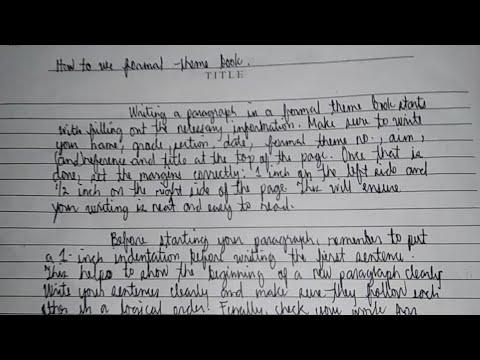 How to use formal theme book.
TITLE
Writing a paragraph in a formal theme book starts
with filling out the necessary information. Make sure to write
your name, grade, section, date, formal theme no., aim,
and reference and title at the top of the page. Once that is
done, set the margins correctly: 1 inch on the left side and
1/2 inch on the right side of the page. This will ensure
your writing is neat and easy to read.
Before starting your paragraph, remember to put
a 1-inch indentation before writing the first sentence.
This helps to show the beginning of a new paragraph clearly
Write your sentences clearly and make sure they follow each
other in a logical order. Finally, check your work for